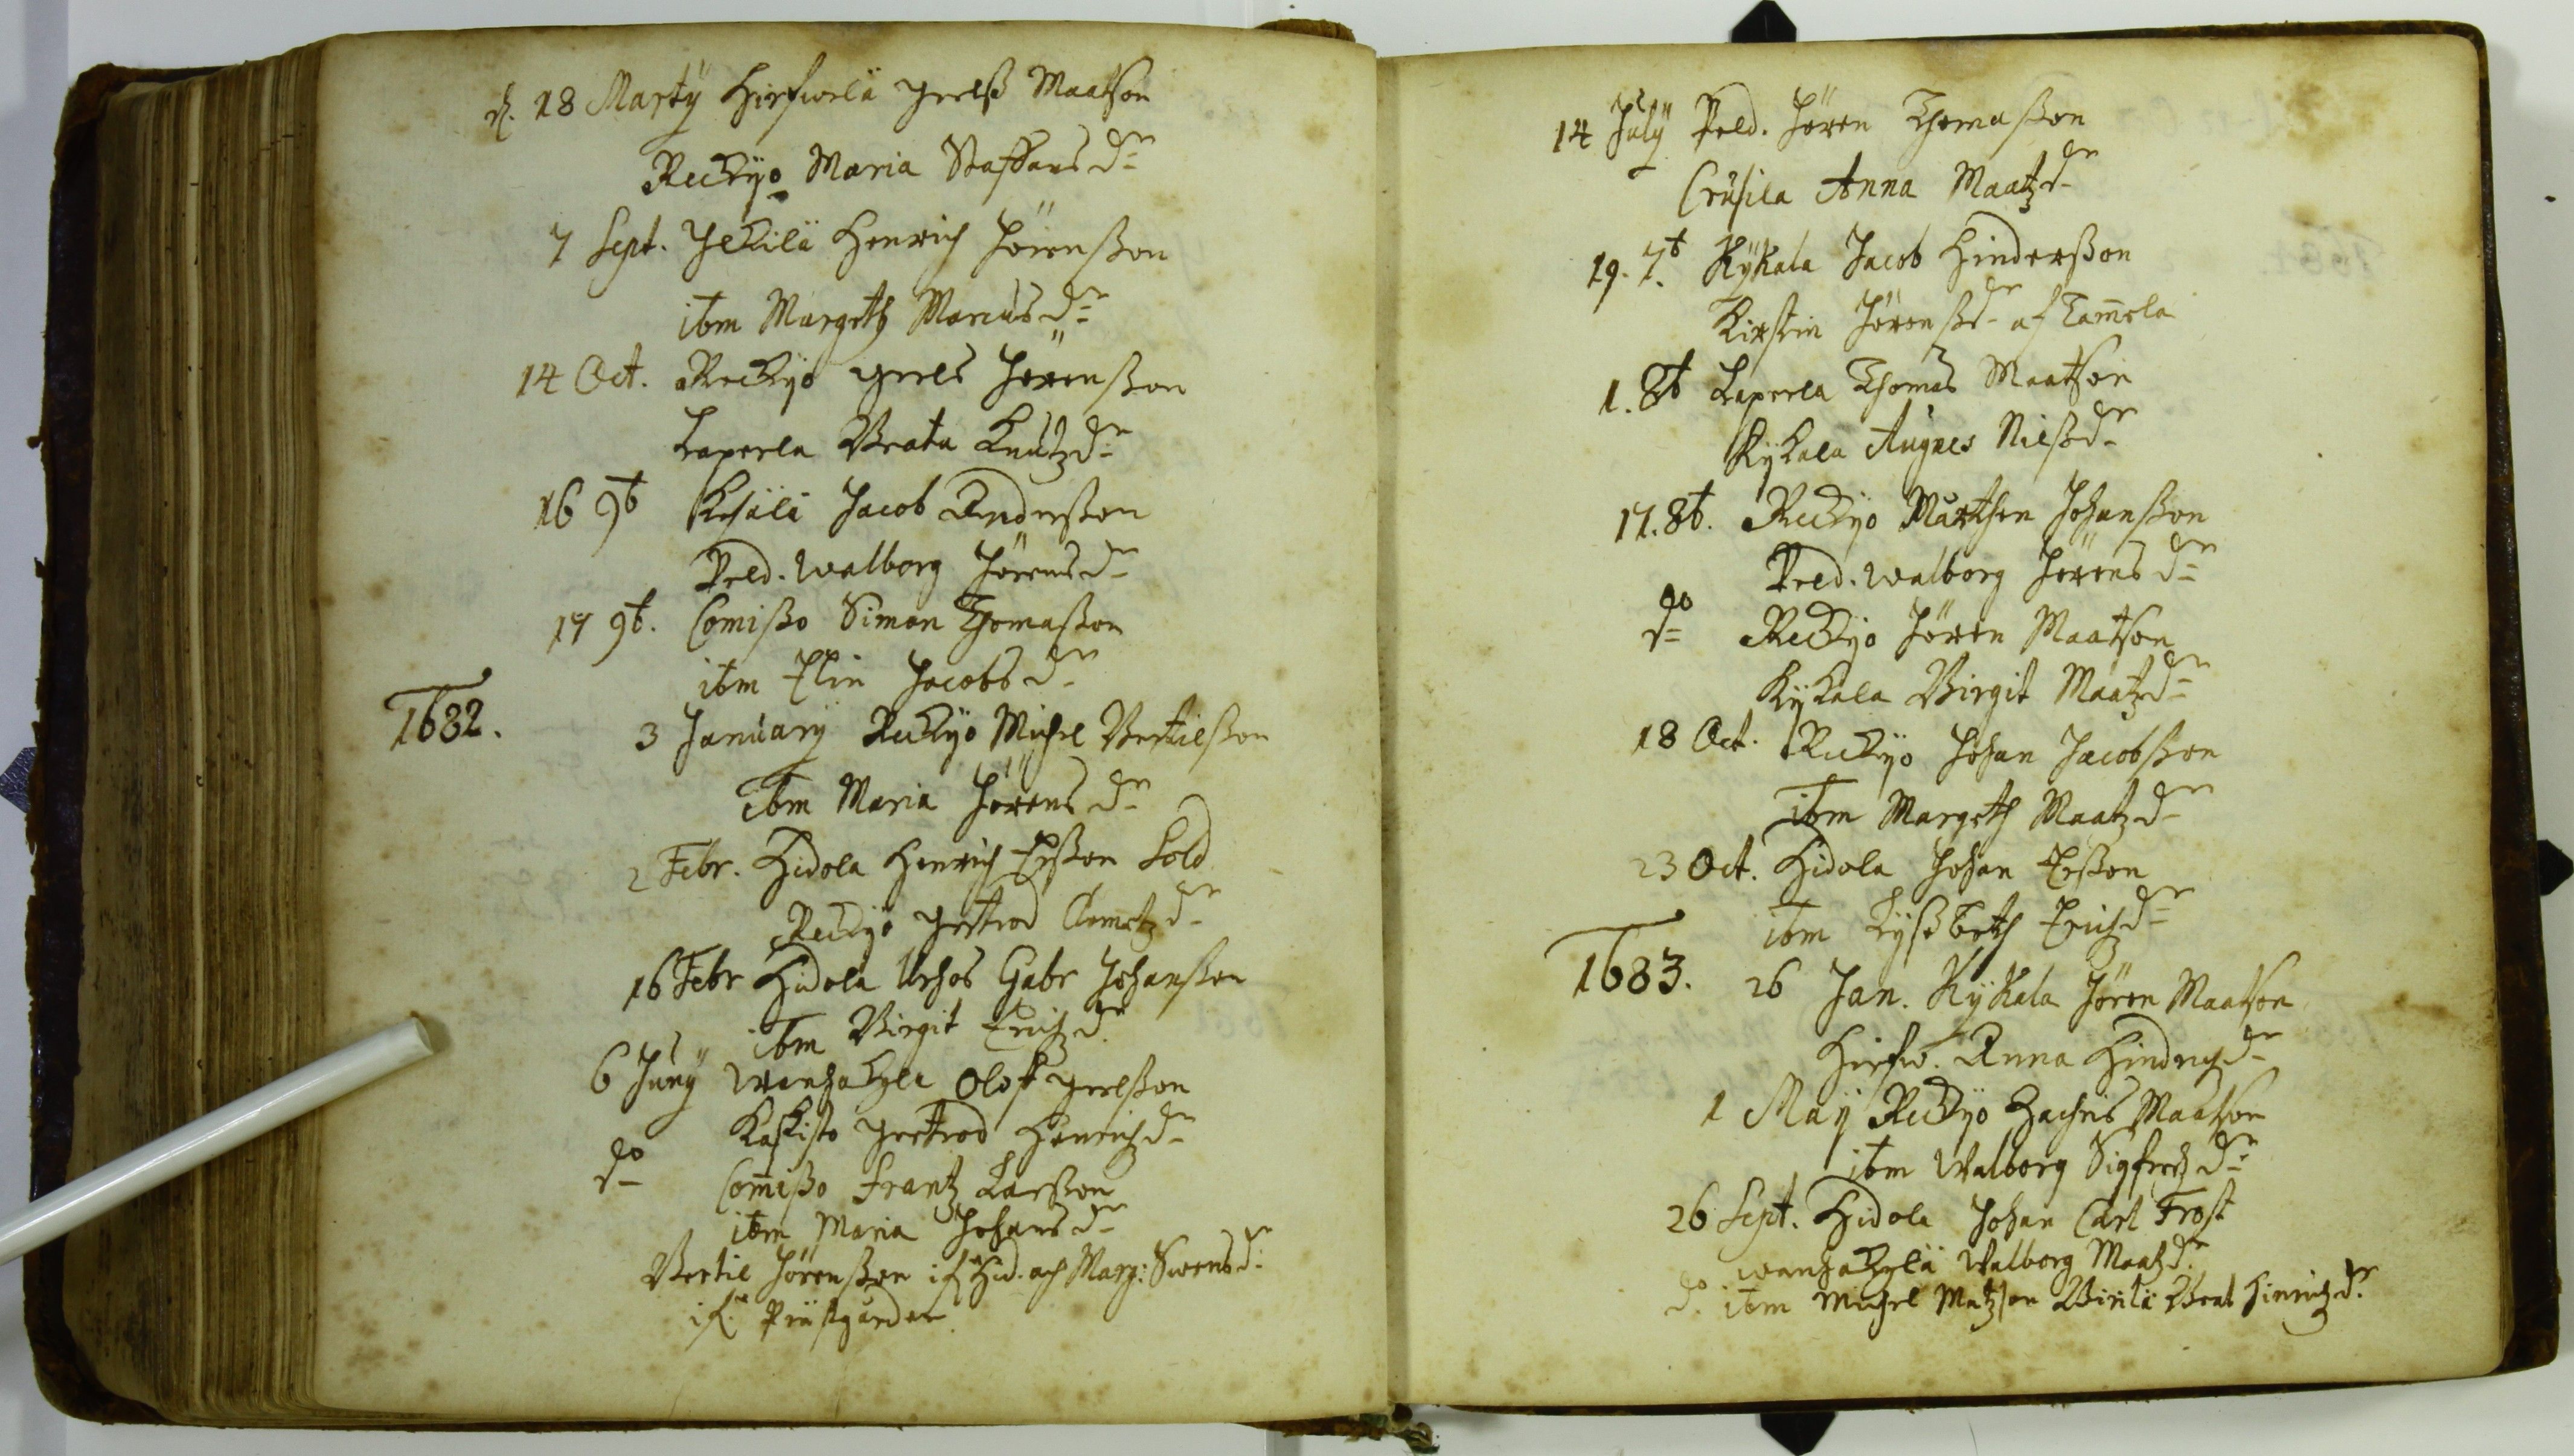 d. 18 Martÿ Hirfwelä Grels Maatson
Reckÿo Maria Staffans dr
7 Sept. Jllilä Henrich Jörensson
ibm Margeth Marcus dr
14 Oct. Reckÿo Grels Jörensson
Laperla Beata Knutz dr
16 9b Kesälä Jacob Andersson
Peld. Walborg Jörens dr
17 9b. Comisso Simon Thomasson
ibm Elin Jacobs dr
1682. 3 Januarÿ Reckÿo Michel Bertilsson
ibm Maria Jörens dr
2 Febr. Hidola Henrich Ersson Sold
Reckÿo Gertrod Clemetz dr
16 Febr Hidola Urhos Gabr Johansson
ibm Birgit Erichz dr
6 Junÿ Wanhakylä Olof Grelsson
Kaskisto Gertrod Henrichz dr
do Comisso Frantz Larsson
ibm Maria Johans dr
Bertil Jörensson if. Hid. och Marg: Swens d:
if. Prästgården
14 Julÿ Peld. Jören Thomasson
Crusila Anna Maatz dr
19. 7b Kÿkala Jacob Hindersson
Kirstin Jörenss dr af Tamela
1. 8b Laperla Thomas Maatson
Kÿkala Augnes Nilss dr
17. 8b. Reckÿo Marthen Johansson
Peld. Walborg Jörens dr
do Reckÿo Jören Maatson
Kÿkala Birgit Maatz dr
18 Oct. Reckÿo Johan Jacobsson
ibm Margeth Maatz dr
23 Oct. Hidola Johan Ersson
ibm Lÿsbeth Erichz dr
1683. 26 Jan. Kÿkala Jören Maatson
Hirfw. Anna Hindrich dr
1 Maÿ Reckÿo Zachris Maatson
ibm Walborg Sigfredz dr
26 Sept. Hidola Johan Carl Frost
Wanhakÿlä Walborg Maatz d.
do. ibm Michel Matzson Beat Hinrichz d.